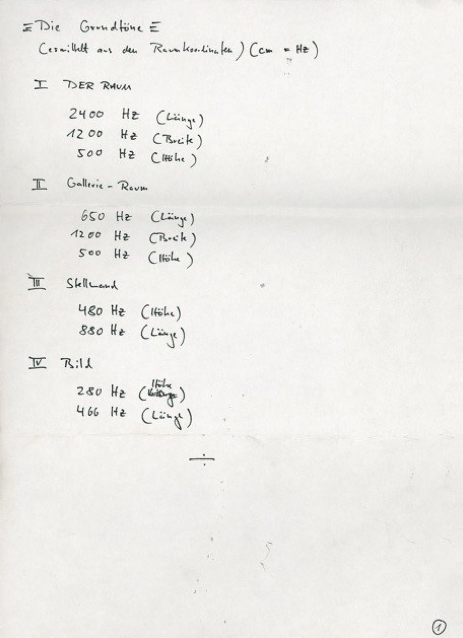 Die Grundtöne
(ermittelt aus den Raumkoordinaten) (cm = Hz)
I DER RAUM
2400 Hz (Länge)
1200 Hz (Breite)
500 Hz (Höhe)
II Gallerie-Raum
650 Hz (Länge)
1200 Hz (Breite)
500 Hz (Höhe)
III Stellwand
480 Hz (Höhe)
880 Hz (Länge)
IV Bild
280 Hz (Höhe)
466 Hz (Länge)
1